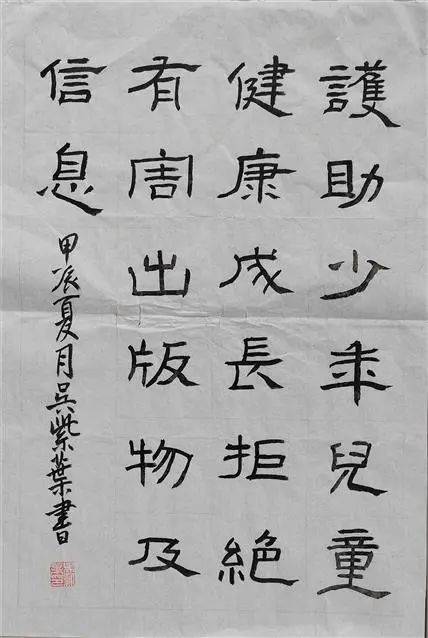 護助少年兒童
健康成長拒絕
有害出版物及
信息
甲辰夏月吳紫葉書